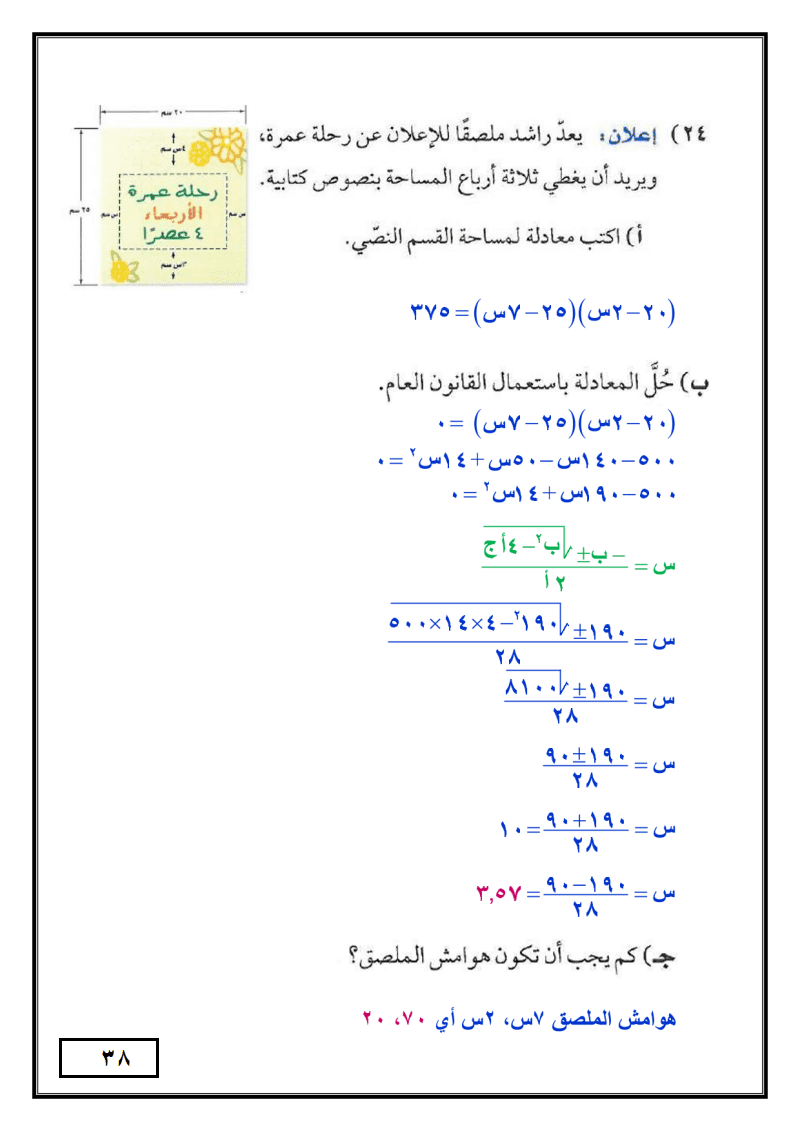 ٢٤) إعلان: يعدّ راشد ملصقًا للإعلان عن رحلة عمرة،
ويريد أن يغطي ثلاثة أرباع المساحة بنصوص كتابية.
٢٠ سم
٤س سم
٢٥ سم
س سم
رحلة عمرة
الأربعاء
٤ عصرًا
س سم
٣س سم
أ) اكتب معادلة لمساحة القسم النصّي.
(٢٠−٢س)(٢٥−٧س)=٣٧٥
ب) حُلَّ المعادلة باستعمال القانون العام.
(٢٠−٢س)(٢٥−٧س) =٠
٥٠٠−١٤٠س−٥٠س+١٤س٢ =٠
٥٠٠−١٩٠س+١٤س٢ =٠
س = (−ب±√(ب٢−٤أج))/(٢أ)
س = (١٩٠±√(١٩٠٢−٤×١٤×٥٠٠))/٢٨
س = (١٩٠±√٨١٠٠)/٢٨
س = (١٩٠±٩٠)/٢٨
س = (١٩٠+٩٠)/٢٨ =١٠
س = (١٩٠−٩٠)/٢٨ =٣,٥٧
جـ) كم يجب أن تكون هوامش الملصق؟
هوامش الملصق ٧س، ٢س أي ٧٠، ٢٠
٣٨